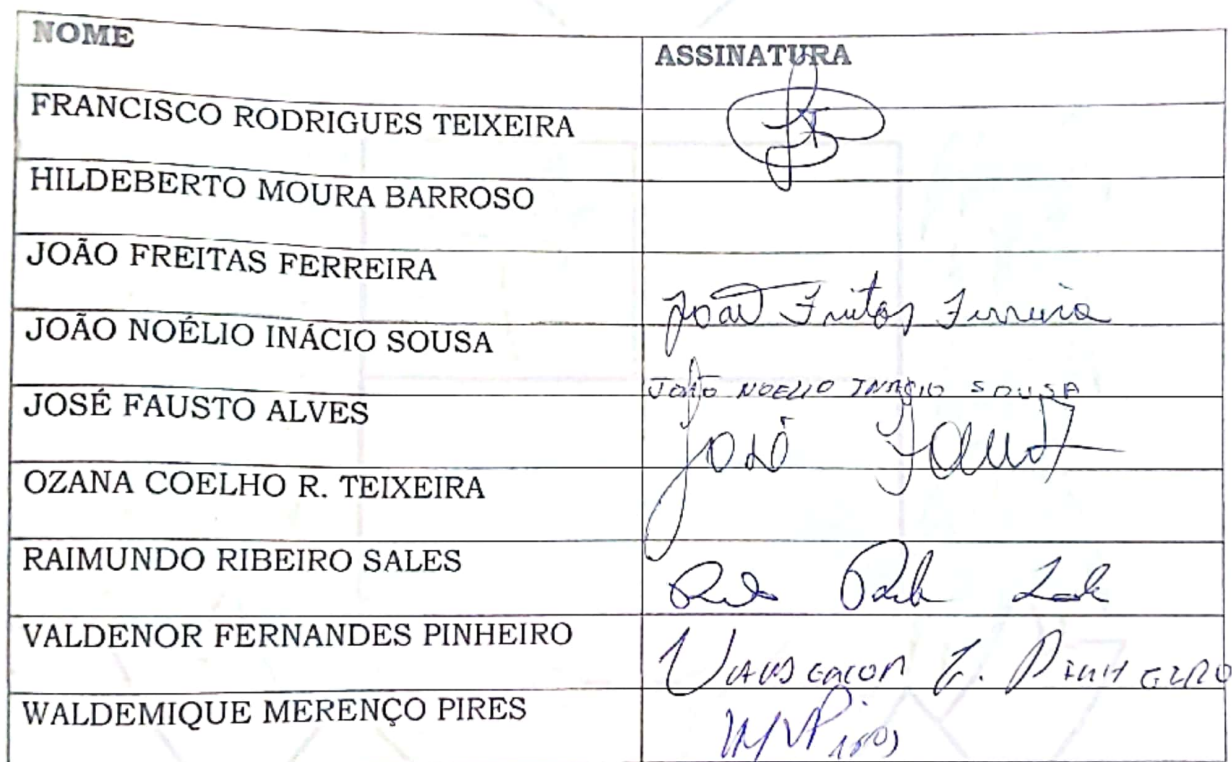 NOME ASSINATURA
FRANCISCO RODRIGUES TEIXEIRA
HILDEBERTO MOURA BARROSO
JOÃO FREITAS FERREIRA João Freitas Ferreira
JOÃO NOÉLIO INÁCIO SOUSA JOÃO NOELIO INÁCIO SOUSA
JOSÉ FAUSTO ALVES José Faust
OZANA COELHO R. TEIXEIRA
RAIMUNDO RIBEIRO SALES
VALDENOR FERNANDES PINHEIRO F. PINHEIRO
WALDEMIQUE MERENÇO PIRES Pires